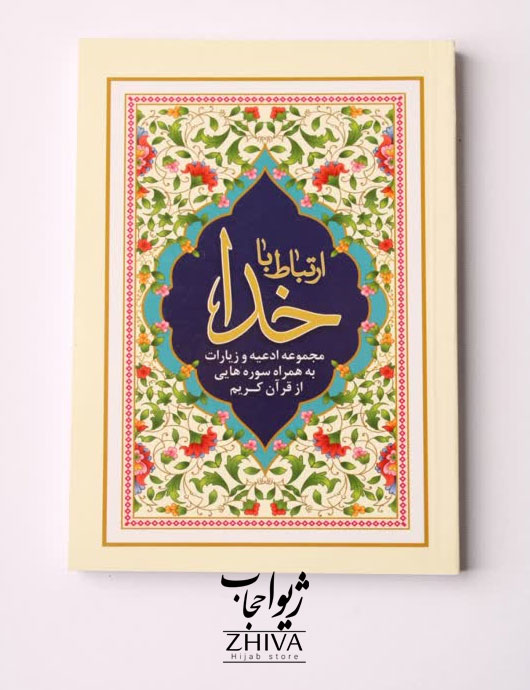 ارتباط با
خدا
مجموعه ادعیه و زیارات
به همراه سوره هایی
از قرآن کریم
ژیوا حجاب
ZHIVA
Hijab store